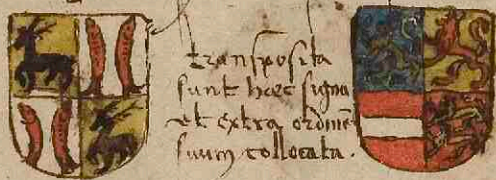 Transposita
sunt haec signa
et extra ordinē
suum collocata.